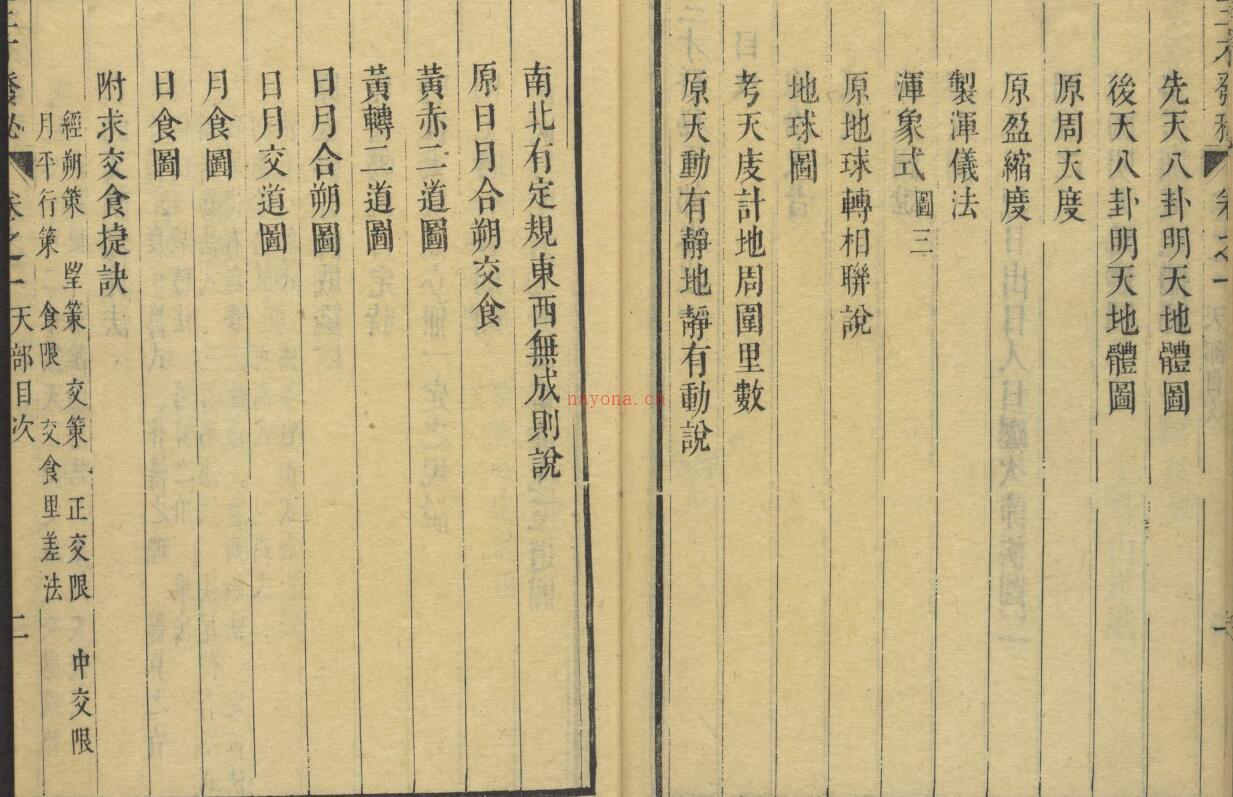 三才發秘 卷之一 一
先天八卦明天地體圖
後天八卦明天地體圖
原周天度
原盈縮度
製渾儀法
渾象式 圖三
原地球轉相聯說
地球圖
考天度計地周圍里數
原天動有靜地靜有動說
南北有定規東西無成則說
原日月合朔交食
黃赤二道圖
黃轉二道圖
日月合朔圖
日月交道圖
月食圖
日食圖
附求交食捷訣
經朔策 望策 交策 正交限 中交限
月平行策 食限 交食里差法
三才發秘 卷之一 天部目次 二
nayona.cn